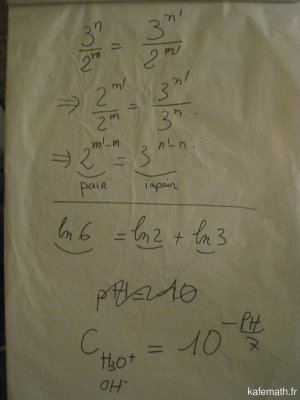 3ⁿ/2ᵐ = 3ⁿ'/2ᵐ'
⇒ 2ᵐ'/2ᵐ = 3ⁿ'/3ⁿ.
⇒ 2ᵐ'⁻ᵐ = 3ⁿ'⁻ⁿ.
pair impair
ln 6 = ln 2 + ln 3
pH = 10
C H3O+ = 10
OH-
kafemath.fr